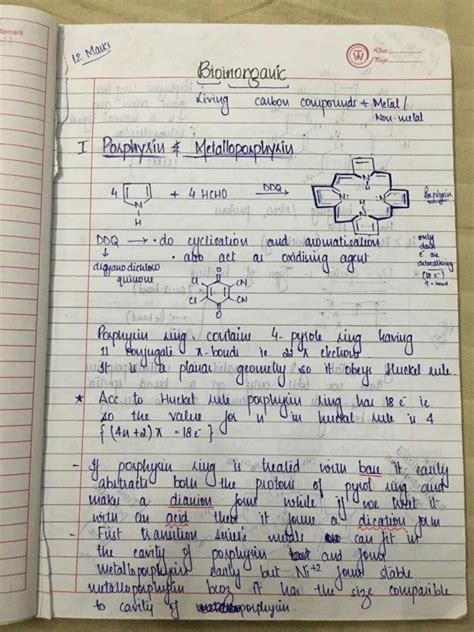 12 Marks
Date
Page
Bioinorganic
Living carbon compounds + Metal/
Non-metal
I Porphyrin & Metalloporphyrin
4 N H + 4 HCHO DDQ Porphyrin
DDQ → • do cyclication and aromatisation
↓ • also act as oxidising agent
dicyano dichloro
quinone
only
dark
e⁻ are
delocalising
(18 e⁻)
9-bonds
O
Cl CN
Cl CN
O
Porphyrin ring contains 4-pyrole ring having
11 conjugate π-bonds ie 22 π electrons
It is a planar geometry so it obeys Huckel rule.
* Acc to Huckel rule porphyrin ring has 18 e⁻ ie
so the value for n in huckel rule is 4
{(4n+2)π = 18e⁻}
- If porphyrin ring is treated with base it easily
abstracts both the protons of pyrol ring and
make a dianion form while if we treat it
with an acid then it forms a dication form
- First transition series metals can fit in
the cavity of porphyrin and form
metalloporphyrin easily but Ni⁺² form stable
metalloporphyrin bcoz it has the size comparible
to cavity of porphyrin.